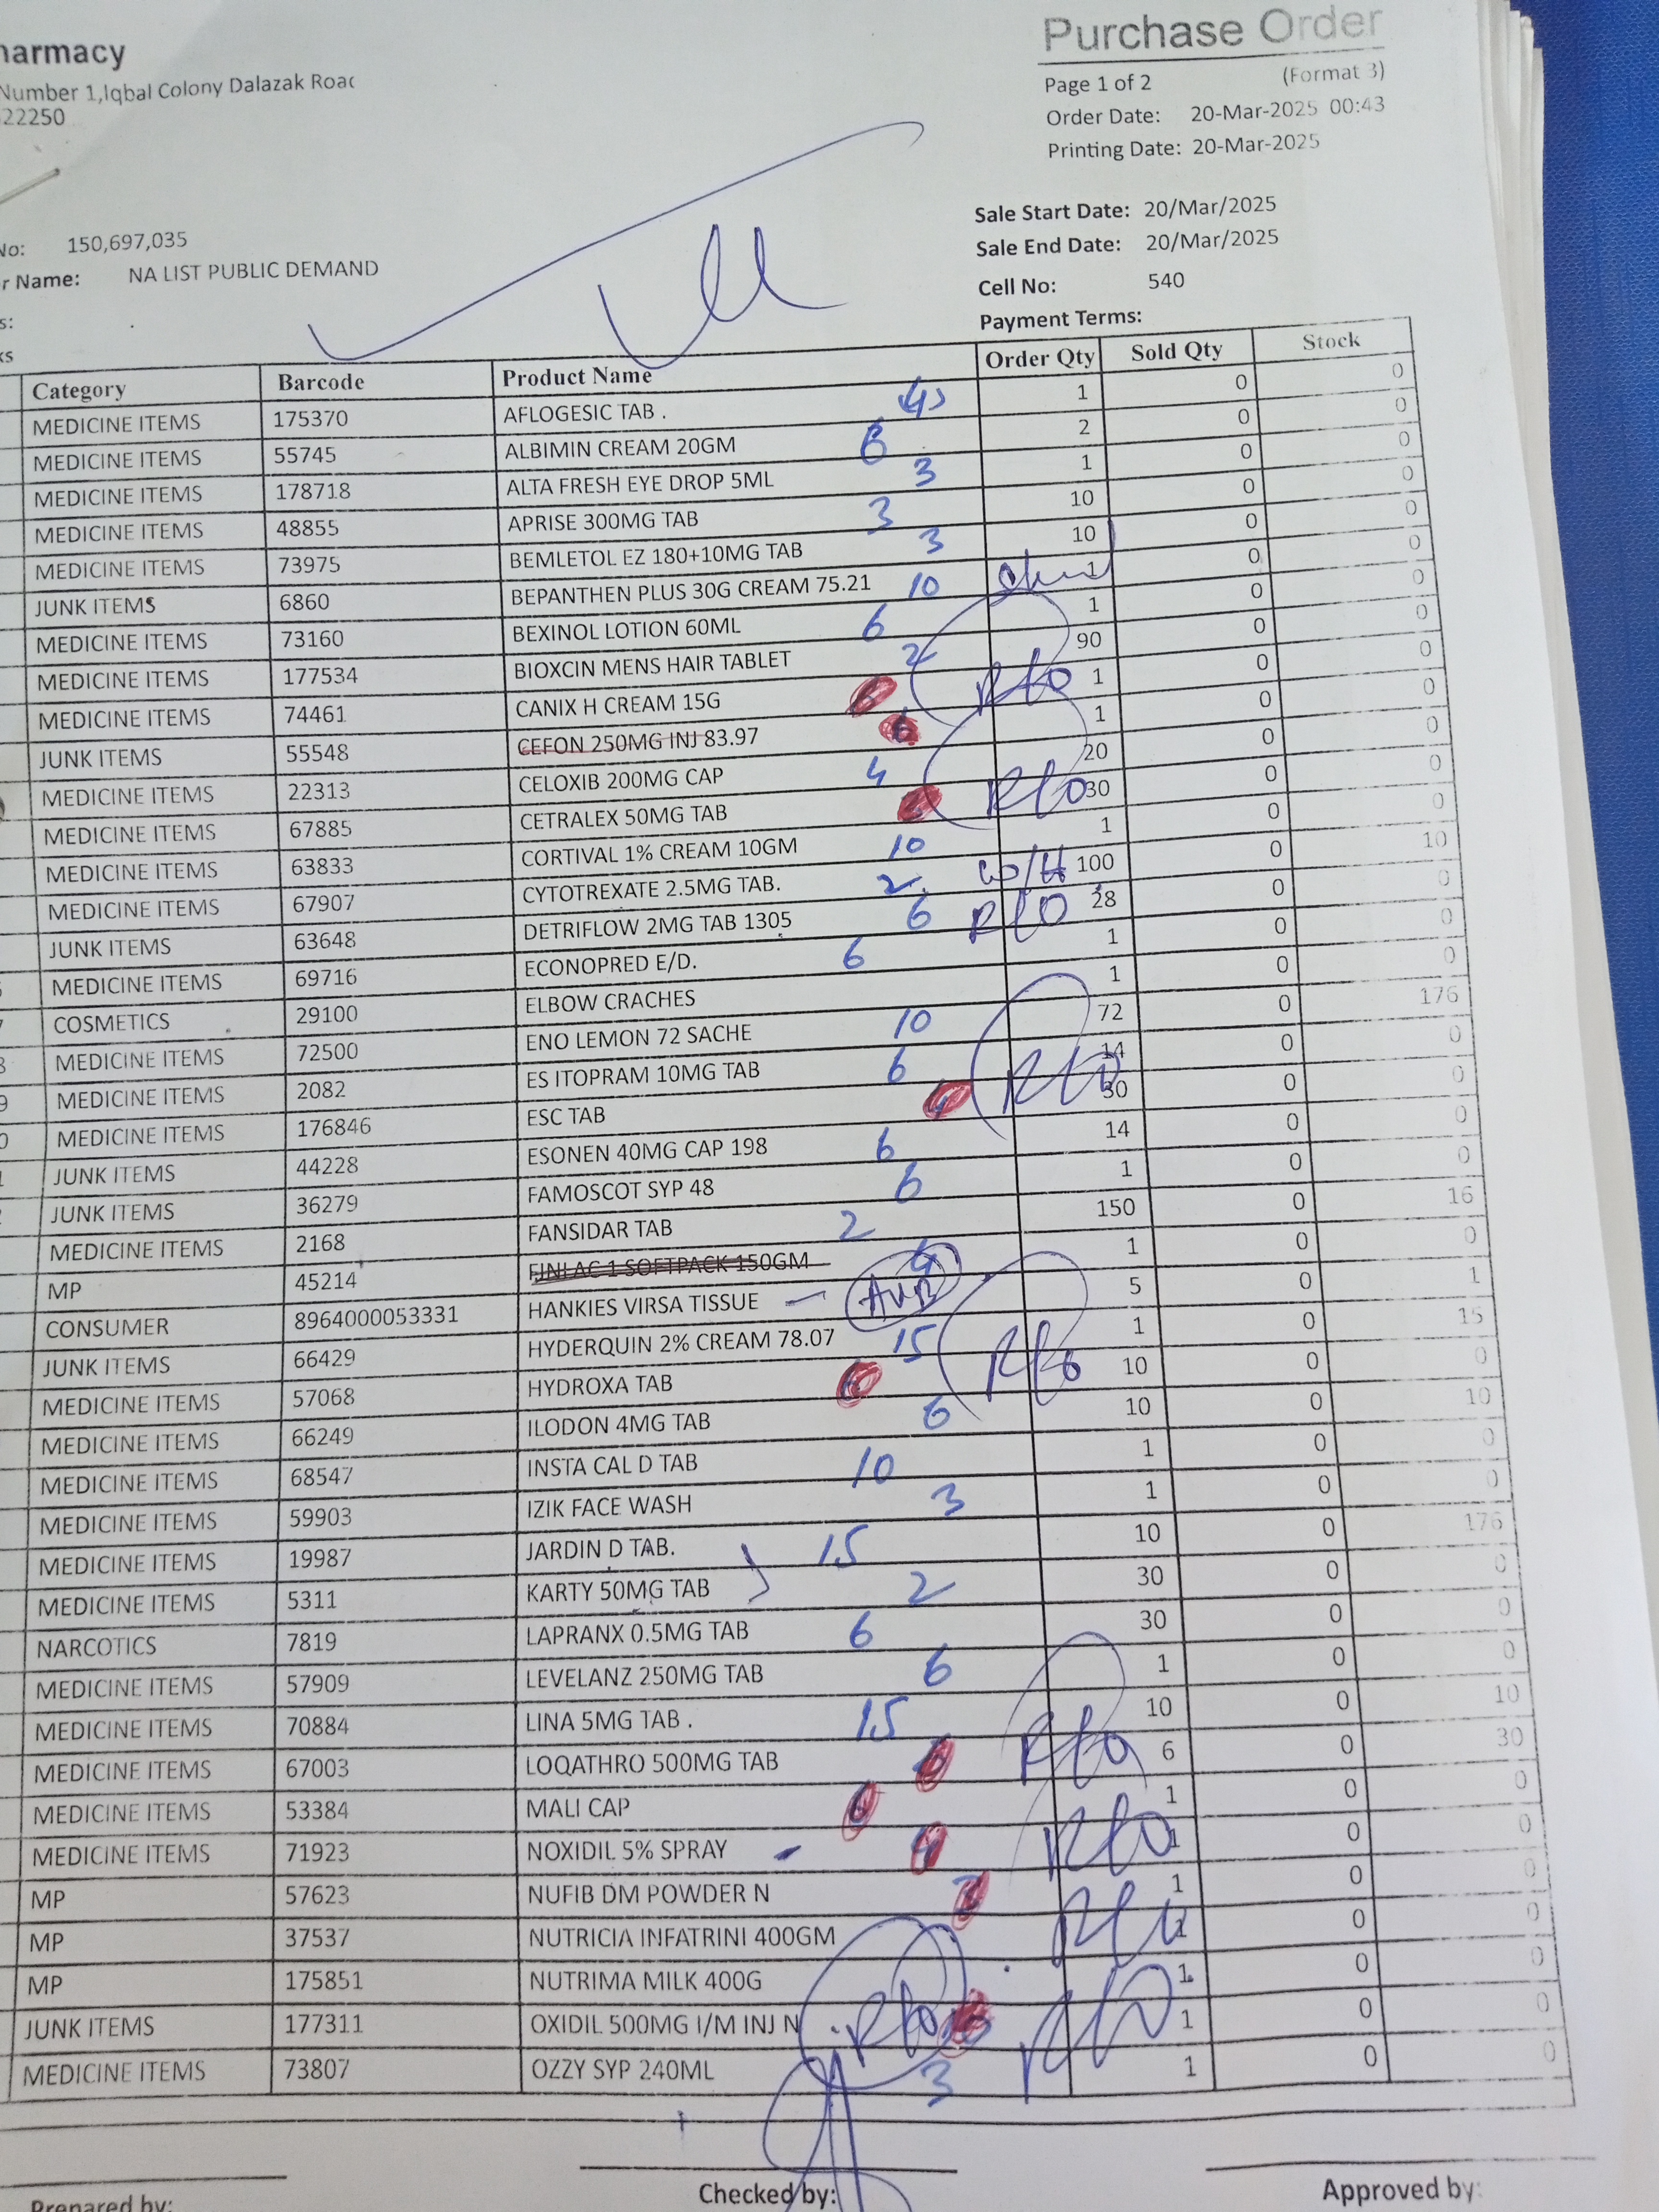 harmacy
Number 1,Iqbal Colony Dalazak Road
22250
Purchase Order
Page 1 of 2 (Format 3)
Order Date: 20-Mar-2025 00:43
Printing Date: 20-Mar-2025
No: 150,697,035
r Name: NA LIST PUBLIC DEMAND
s:
ks
Sale Start Date: 20/Mar/2025
Sale End Date: 20/Mar/2025
Cell No: 540
Payment Terms:
Category Barcode Product Name Order Qty Sold Qty Stock
MEDICINE ITEMS 175370 AFLOGESIC TAB . 1 0 0
MEDICINE ITEMS 55745 ALBIMIN CREAM 20GM 6 2 0 0
MEDICINE ITEMS 178718 ALTA FRESH EYE DROP 5ML 3 1 0 0
MEDICINE ITEMS 48855 APRISE 300MG TAB 3 10 0 0
MEDICINE ITEMS 73975 BEMLETOL EZ 180+10MG TAB 3 10 0 0
JUNK ITEMS 6860 BEPANTHEN PLUS 30G CREAM 75.21 10 1 0 0
MEDICINE ITEMS 73160 BEXINOL LOTION 60ML 6 1 0 0
MEDICINE ITEMS 177534 BIOXCIN MENS HAIR TABLET 2 90 0 0
MEDICINE ITEMS 74461 CANIX H CREAM 15G 1 0 0
JUNK ITEMS 55548 CEFON 250MG INJ 83.97 1 0 0
MEDICINE ITEMS 22313 CELOXIB 200MG CAP 4 20 0 0
MEDICINE ITEMS 67885 CETRALEX 50MG TAB 30 0 0
MEDICINE ITEMS 63833 CORTIVAL 1% CREAM 10GM 10 1 0 0
MEDICINE ITEMS 67907 CYTOTREXATE 2.5MG TAB. 2 100 0 10
JUNK ITEMS 63648 DETRIFLOW 2MG TAB 1305 6 28 0 0
MEDICINE ITEMS 69716 ECONOPRED E/D. 6 1 0 0
COSMETICS 29100 ELBOW CRACHES 1 0 0
MEDICINE ITEMS 72500 ENO LEMON 72 SACHE 10 72 0 176
MEDICINE ITEMS 2082 ES ITOPRAM 10MG TAB 6 14 0 0
MEDICINE ITEMS 176846 ESC TAB 30 0 0
JUNK ITEMS 44228 ESONEN 40MG CAP 198 6 14 0 0
JUNK ITEMS 36279 FAMOSCOT SYP 48 6 1 0 0
MEDICINE ITEMS 2168 FANSIDAR TAB 2 150 0 16
MP 45214 FINLAC 1 SOFTPACK 150GM 1 0 0
CONSUMER 8964000053331 HANKIES VIRSA TISSUE 5 0 1
JUNK ITEMS 66429 HYDERQUIN 2% CREAM 78.07 15 1 0 15
MEDICINE ITEMS 57068 HYDROXA TAB 10 0 0
MEDICINE ITEMS 66249 ILODON 4MG TAB 6 10 0 10
MEDICINE ITEMS 68547 INSTA CAL D TAB 10 1 0 0
MEDICINE ITEMS 59903 IZIK FACE WASH 3 1 0 0
MEDICINE ITEMS 19987 JARDIN D TAB. 15 10 0 176
MEDICINE ITEMS 5311 KARTY 50MG TAB 2 30 0 0
NARCOTICS 7819 LAPRANX 0.5MG TAB 6 30 0 0
MEDICINE ITEMS 57909 LEVELANZ 250MG TAB 6 1 0 0
MEDICINE ITEMS 70884 LINA 5MG TAB . 15 10 0 10
MEDICINE ITEMS 67003 LOQATHRO 500MG TAB 6 0 30
MEDICINE ITEMS 53384 MALI CAP 1 0 0
MEDICINE ITEMS 71923 NOXIDIL 5% SPRAY 1 0 0
MP 57623 NUFIB DM POWDER N 1 0 0
MP 37537 NUTRICIA INFATRINI 400GM 1 0 0
MP 175851 NUTRIMA MILK 400G 1 0 0
JUNK ITEMS 177311 OXIDIL 500MG I/M INJ N 1 0 0
MEDICINE ITEMS 73807 OZZY SYP 240ML 3 1 0 0
Prepared by: Checked by: Approved by: